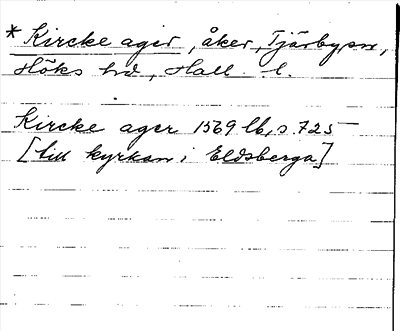 * Kircke ager, åker, Tjärby sn,
Höks hd, Hall. l.
Kircke ager 1569 lb, s. 725
[till kyrkan i Eldsberga]